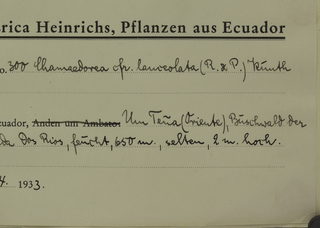 erica Heinrichs, Pflanzen aus Ecuador
o. 300 Chamaedorea cfr. lanceolata (R. & P.) Kunth
cuador, Anden um Ambato: Um Tena (Oriente), Buschwald der
da Dos Rios, feucht, 650 m., selten, 2 m. hoch.
4. 1933.